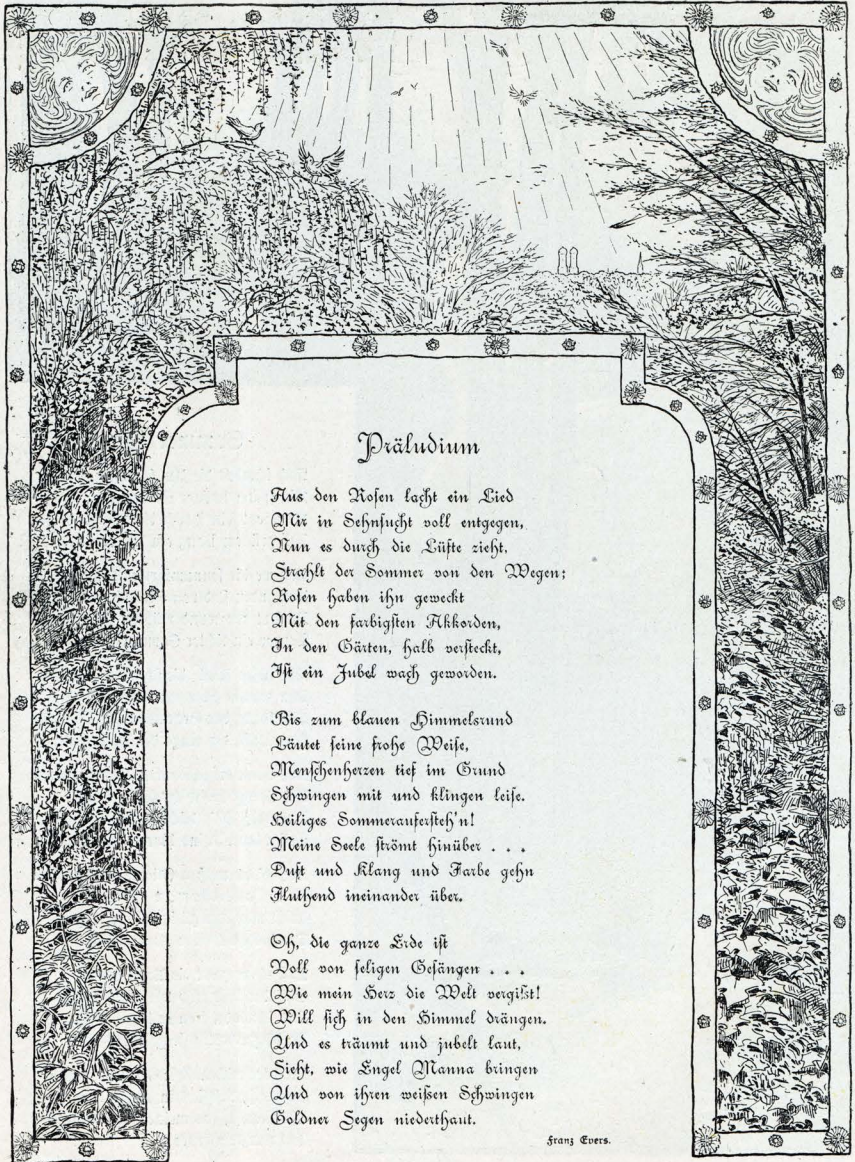 Präludium
Aus den Rosen lacht ein Lied
Mir in Sehnsucht voll entgegen,
Nun es durch die Lüfte zieht,
Strahlt der Sommer von den Wegen;
Rosen haben ihn geweckt
Mit den farbigsten Akkorden,
In den Gärten, halb versteckt,
Ist ein Jubel wach geworden.
Bis zum blauen Himmelsrund
Läutet seine frohe Weise,
Menschenherzen tief im Grund
Schwingen mit und klingen leise.
Heiliges Sommeraufersteh'n!
Meine Seele strömt hinüber . . .
Duft und Klang und Farbe gehn
Fluthend ineinander über.
Oh, die ganze Erde ist
Voll von seligen Gesängen . . .
Wie mein Herz die Welt vergißt!
Will sich in den Himmel drängen.
Und es träumt und jubelt laut,
Sieht, wie Engel Manna bringen
Und von ihren weißen Schwingen
Goldner Segen niederthaut.
Franz Evers.